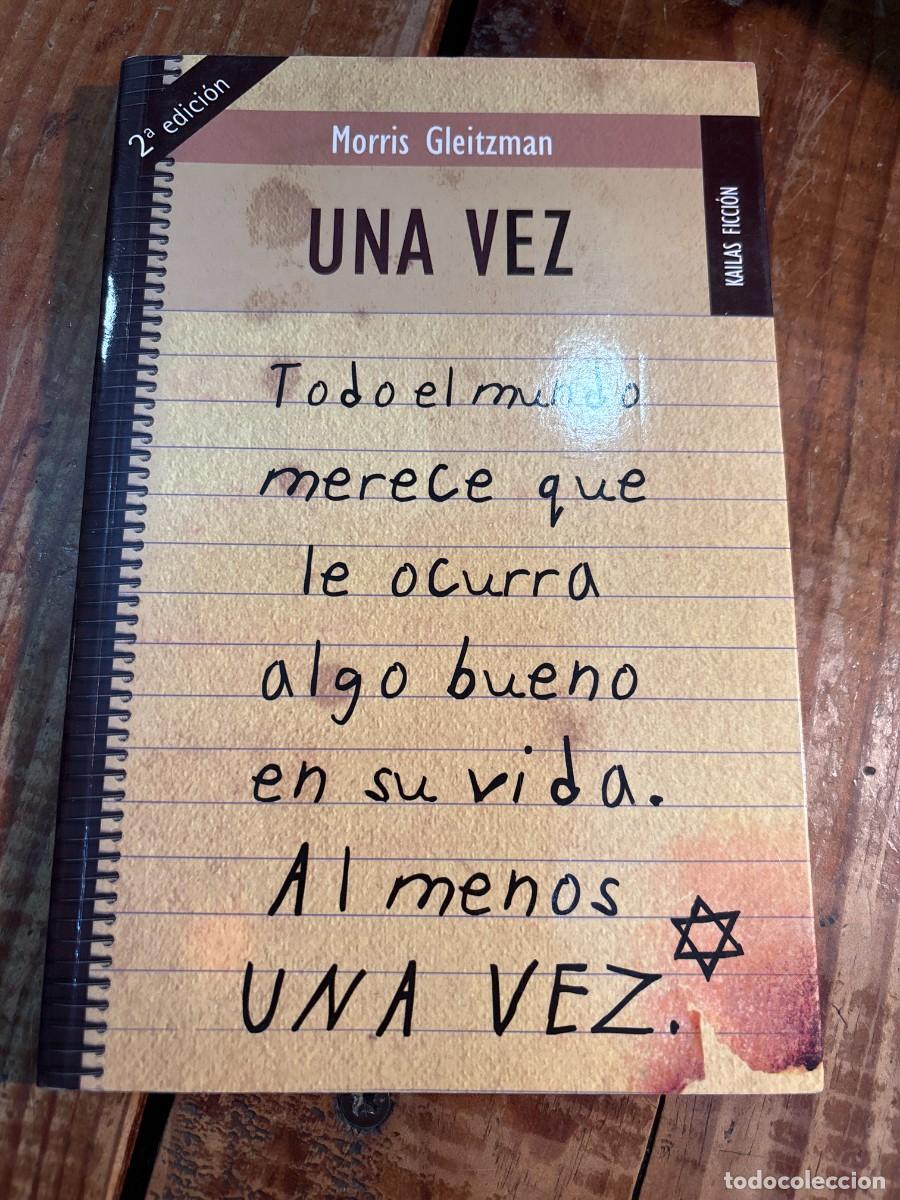 2ª edición
Morris Gleitzman
UNA VEZ
KAILAS FICCIÓN
Todo el mundo
merece que
le ocurra
algo bueno
en su vida.
Al menos
UNA VEZ.
todocoleccion